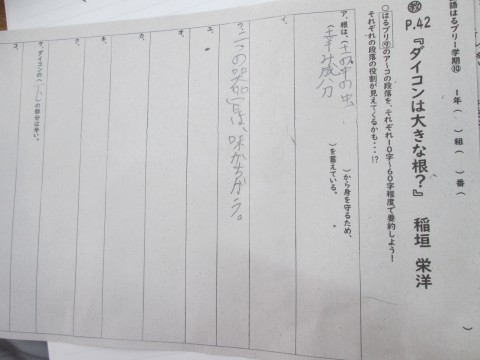 語はるプリー学期⑩　ー年（　）組（　）番（
教P.42『ダイコンは大きな根？』　稲垣 栄洋
○はるプリ⑰のア～コの段落を、それぞれ10字～60字程度で要約しよう！
それぞれの段落の役割が見えてくるかも・・・！？
ア、根は、（土の中の虫　）から身を守るため、
（辛み成分　）を蓄えている。
イ、
ウ、二つの器官は、味がちがう。
エ、
オ、
カ、
キ、
ク、
ケ、ダイコンの（　）の部分は辛い。
コ、